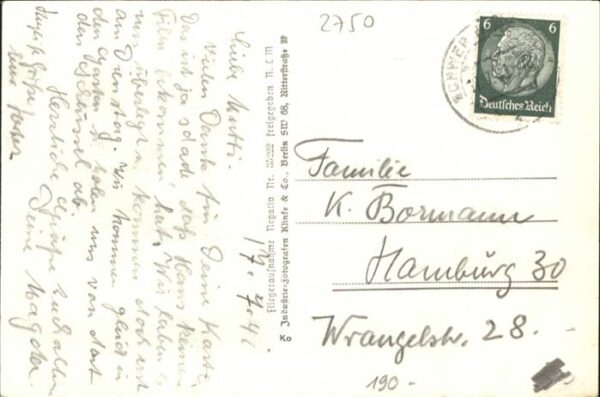 2750
SCHWER
6 6
Deutsches Reich
Liebe Mutti.
Vielen Dank für Deine Karte,
Das ist ja schade daß Hans keinen
bekommen hat. Wir haben es
uns überlegt u. kommen doch erst
am Dienstag. Wir kommen gleich in
den Garten u. holen uns von dort
den Schlüssel ab.
Herzliche Grüße Euch allen
Deine Magda.
Fliegeraufnahme Negativ Nr. freigegeben R. L M
Ko Industrie-Fotografen Klinke & Co., Berlin SW 68, Ritterstraße
Familie
K. Bormann
Hamburg 30
Wrangelstr. 28.
190.-